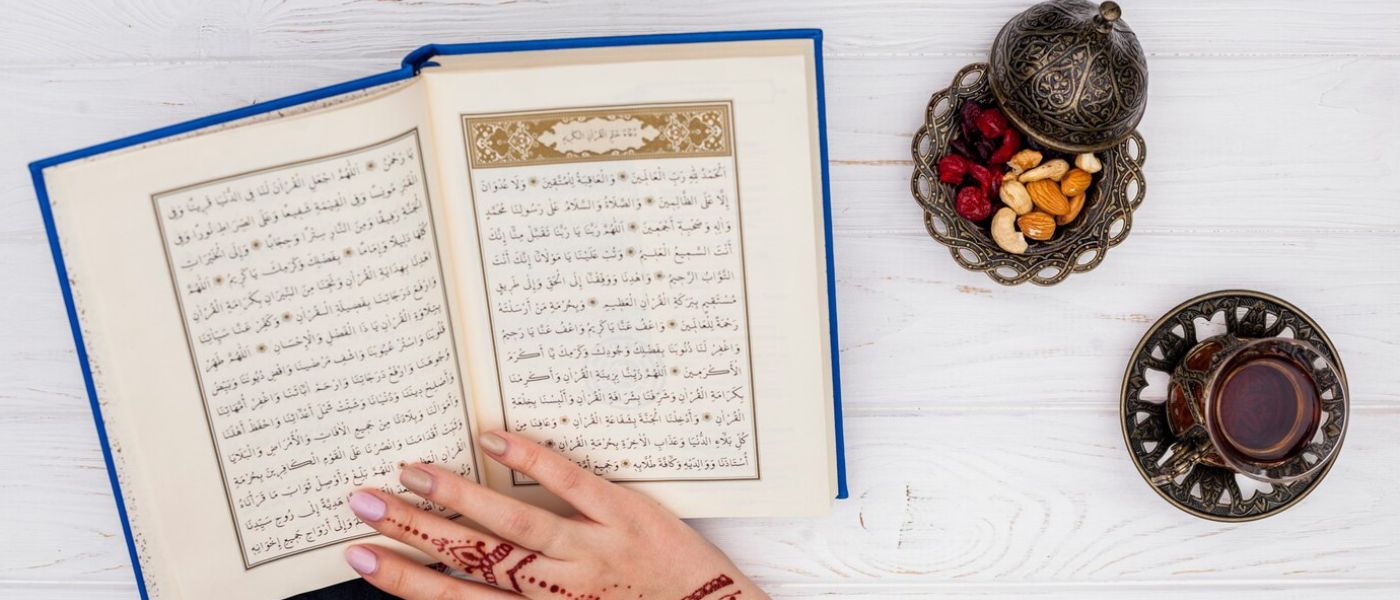 دُعَاءُ خَتْمِ الْقُرْآنِ الْكَرِيمِ
اَلْحَمْدُ لِلّٰهِ رَبِّ الْعَالَمِينَ ❋ وَالْعَاقِبَةُ لِلْمُتَّقِينَ ❋ وَلَا عُدْوَانَ
إِلَّا عَلَى الظَّالِمِينَ ❋ وَالصَّلَاةُ وَالسَّلَامُ عَلَى رَسُولِنَا مُحَمَّدٍ
وَاٰلِهِ وَصَحْبِهِ أَجْمَعِينَ ❋ اَللّٰهُمَّ رَبَّنَا يَا رَبَّنَا تَقَبَّلْ مِنَّا إِنَّكَ
أَنْتَ السَّمِيعُ الْعَلِيمُ ❋ وَتُبْ عَلَيْنَا يَا مَوْلَانَا إِنَّكَ أَنْتَ
التَّوَّابُ الرَّحِيمُ ❋ وَاهْدِنَا وَوَفِّقْنَا إِلَى الْحَقِّ وَإِلَى طَرِيقٍ
مُسْتَقِيمٍ بِبَرَكَةِ الْقُرْاٰنِ الْعَظِيمِ ❋ وَبِحُرْمَةِ مَنْ أَرْسَلْتَهُ
رَحْمَةً لِلْعَالَمِينَ ❋ وَاعْفُ عَنَّا يَا كَرِيمُ وَاعْفُ عَنَّا يَا رَحِيمُ
وَاغْفِرْ لَنَا ذُنُوبَنَا بِفَضْلِكَ وَجُودِكَ وَكَرَمِكَ يَا أَكْرَمَ
الْأَكْرَمِينَ ❋ اَللّٰهُمَّ زَيِّنَّا بِزِينَةِ الْقُرْاٰنِ وَأَكْرِمْنَا
بِكَرَامَةِ الْقُرْاٰنِ وَشَرِّفْنَا بِشَرَافَةِ الْقُرْاٰنِ وَأَلْبِسْنَا بِخِلْعَةِ
الْقُرْاٰنِ ❋ وَأَدْخِلْنَا الْجَنَّةَ بِشَفَاعَةِ الْقُرْاٰنِ ❋ وَعَافِنَا مِنْ
كُلِّ بَلَاءِ الدُّنْيَا وَعَذَابِ الْاٰخِرَةِ بِحُرْمَةِ الْقُرْاٰنِ
أُسْتَاذَنَا وَوَالِدَيْهِ وَكَافَّةَ طُلَّابِهِ ❋ وَجَمِيعَ
يَا رَحْمٰنُ ❋ اَللّٰهُمَّ اجْعَلِ الْقُرْاٰنَ لَنَا فِي الدُّنْيَا قَرِينًا وَفِي
الْقَبْرِ مُونِسًا وَفِي الْقِيٰمَةِ شَفِيعًا وَعَلَى الصِّرَاطِ نُورًا وَفِي
الْجَنَّةِ رَفِيقًا وَمِنَ النَّارِ سِتْرًا وَحِجَابًا ❋ وَإِلَى الْخَيْرَاتِ
كُلِّهَا دَلِيلًا وَإِمَامًا ❋ بِفَضْلِكَ وَكَرَمِكَ يَا كَرِيمُ ❋ اَللّٰهُمَّ
اهْدِنَا بِهِدَايَةِ الْقُرْاٰنِ وَنَجِّنَا مِنَ النِّيرَانِ بِكَرَامَةِ الْقُرْاٰنِ
وَارْفَعْ دَرَجَاتِنَا بِفَضِيلَةِ الْقُرْاٰنِ ❋ وَكَفِّرْ عَنَّا سَيِّئَاتِنَا
بِتِلَاوَةِ الْقُرْاٰنِ يَا ذَا الْفَضْلِ وَالْإِحْسَانِ ❋ اَللّٰهُمَّ طَهِّرْ
قُلُوبَنَا وَاسْتُرْ عُيُوبَنَا وَاشْفِ مَرْضَانَا وَاقْضِ دُيُونَنَا وَبَيِّضْ
وُجُوهَنَا وَارْفَعْ دَرَجَاتِنَا وَارْحَمْ اٰبَائَنَا وَاغْفِرْ أُمَّهَاتِنَا
وَأَصْلِحْ دِينَنَا وَدُنْيَانَا وَشَتِّتْ شَمْلَ أَعْدَائِنَا وَاحْفَظْ أَهْلَنَا
وَأَمْوَالَنَا وَبِلَادَنَا مِنْ جَمِيعِ الْاٰفَاتِ وَالْأَمْرَاضِ وَالْبَلَايَا
وَثَبِّتْ أَقْدَامَنَا وَانْصُرْنَا عَلَى الْقَوْمِ الْكَافِرِينَ بِحُرْمَةِ
الْقُرْاٰنِ الْعَظِيمِ اَللّٰهُمَّ بَلِّغْ وَأَوْصِلْ ثَوَابَ مَا قَرَأْنَاهُ
هَدِيَّةً إِلَى رُوحِ سَيِّدِنَا
وَإِلَى أَرْوَاحِ جَمِيعِ إِخْوَانِهِ